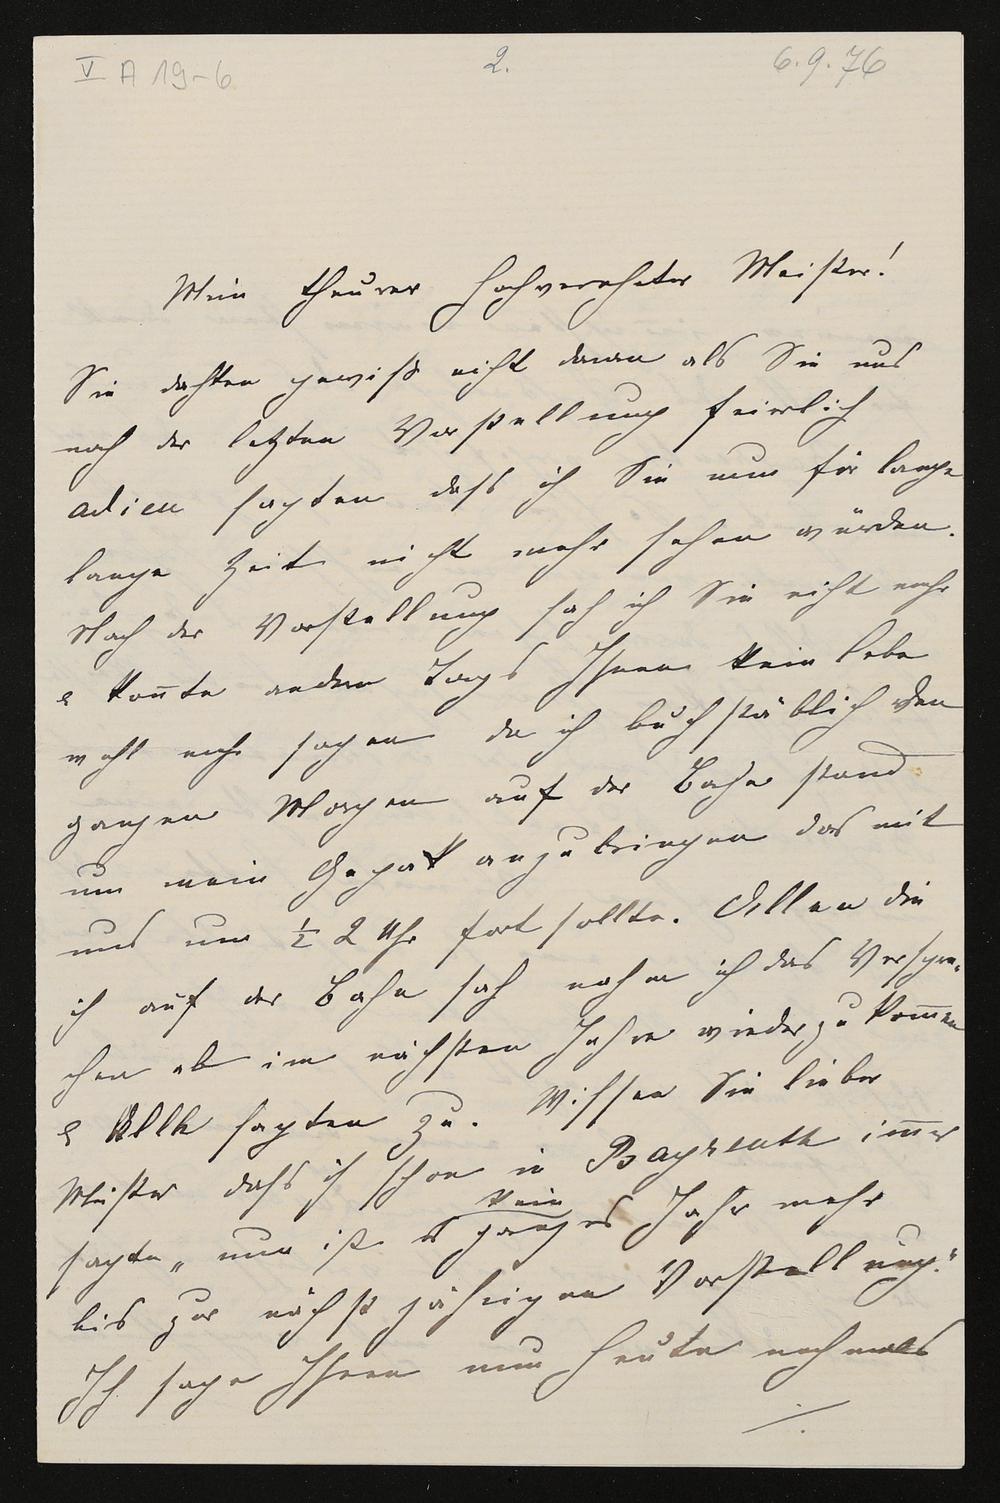 V A 19-6
2.
6.9.76
Mein theurer hochverehrter Meister!
Sie dachten gewiß nicht daran als Sie uns
nach der letzten Vorstellung feierlich
adieu sagten dass ich Sie nun für lange
lange Zeit nicht mehr sehen würden.
Nach der Vorstellung sah ich Sie nicht mehr
& konnte andern Tags Ihnen kein lebe
wohl mehr sagen da ich buchstäblich den
ganzen Morgen auf der Bahn stand
um mein Gepäk anzubringen das mit
uns um ½ 2 Uhr fort sollte. Allen die
ich auf der Bahn sah nahm ich das Verspre-
chen ab im nächsten Jahre wieder zu kommen
& Alle sagten zu. Wissen Sie lieber
Meister dass ich schon in Bayreuth immer
sagte „nun ist es kein ganzes Jahr mehr
bis zur nächst jährigen Vorstellung."
Ich sage Ihnen nun heute nochmals
./.